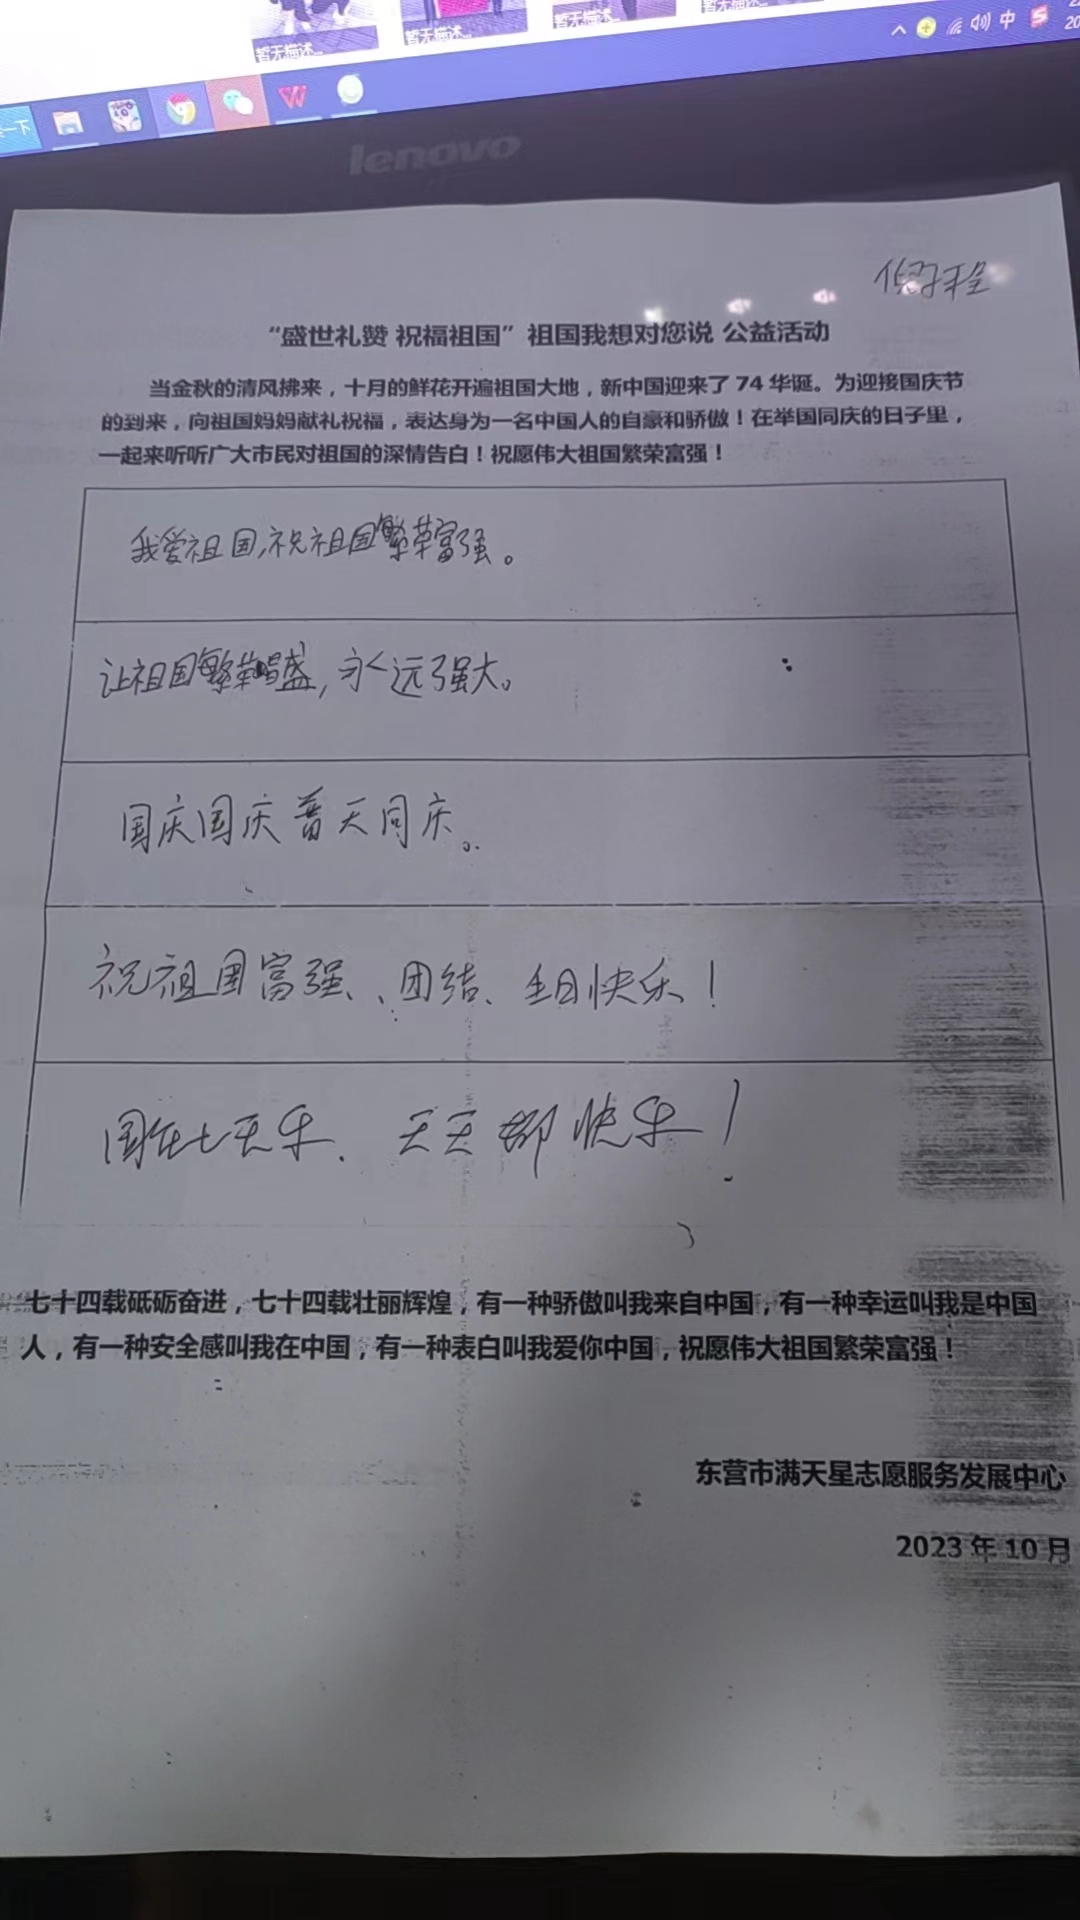 暂无描述...
暂无描述...
暂无描述...
暂无描述...
中
lenovo
“盛世礼赞 祝福祖国”祖国我想对您说 公益活动
当金秋的清风拂来，十月的鲜花开遍祖国大地，新中国迎来了 74 华诞。为迎接国庆节
的到来，向祖国妈妈献礼祝福，表达身为一名中国人的自豪和骄傲！在举国同庆的日子里，
一起来听听广大市民对祖国的深情告白！祝愿伟大祖国繁荣富强！
我爱祖国,祝祖国繁荣富强。
让祖国繁荣昌盛,永远强大。
国庆国庆普天同庆。
祝祖国富强、团结、生日快乐！
国庆七天乐、天天都快乐！
七十四载砥砺奋进，七十四载壮丽辉煌，有一种骄傲叫我来自中国，有一种幸运叫我是中国
人，有一种安全感叫我在中国，有一种表白叫我爱你中国，祝愿伟大祖国繁荣富强！
东营市满天星志愿服务发展中心
2023 年 10 月